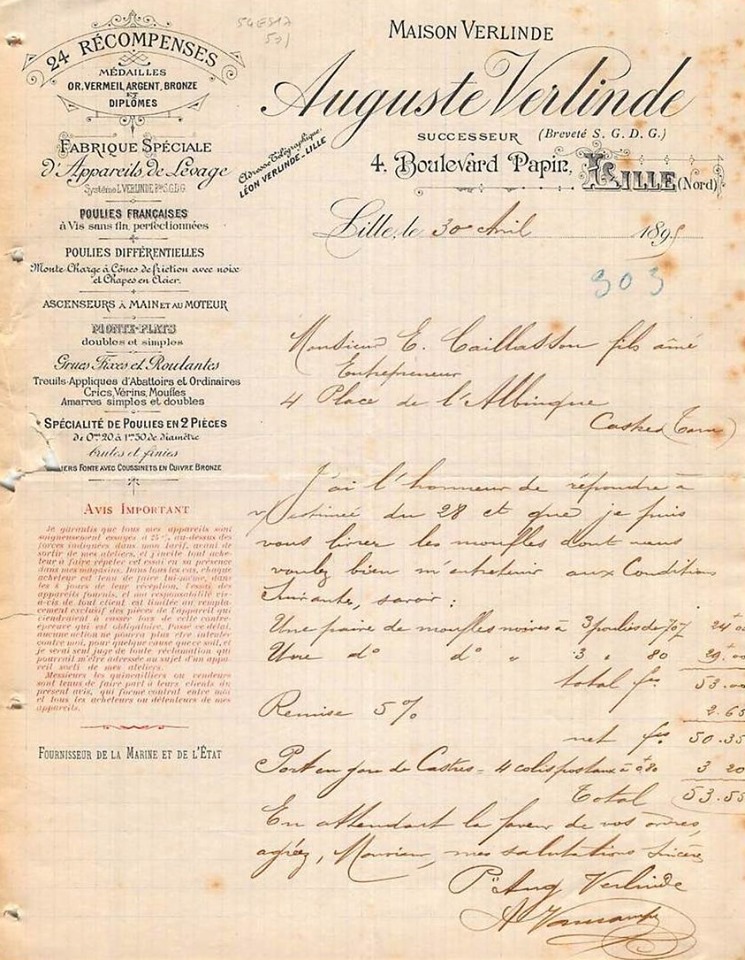 54ES17
571
24 RÉCOMPENSES
MÉDAILLES
OR, VERMEIL, ARGENT, BRONZE
ET
DIPLÔMES
FABRIQUE SPÉCIALE
d'Appareils de Levage
Système L. VERLINDE Bté S.G.D.G.
POULIES FRANÇAISES
à Vis sans fin, perfectionnées
POULIES DIFFÉRENTIELLES
Monte-Charge à Cônes de friction avec noix
et Chapes en Acier.
ASCENSEURS À MAIN ET AU MOTEUR
MONTE-PLATS
doubles et simples
Grues Fixes et Roulantes
Treuils-Appliques d'Abattoirs et Ordinaires
Crics, Vérins, Moufles
Amarres simples et doubles
SPÉCIALITÉ DE POULIES EN 2 PIÈCES
de 0m20 à 1m50 de diamètre
brutes et finies
IERS FONTE AVEC COUSSINETS EN CUIVRE BRONZE
AVIS IMPORTANT
Je garantis que tous mes appareils sont
soigneusement essayés à 25 %, au-dessus des
forces indiquées dans mon tarif, avant de
sortir de mes ateliers, et j'invite tout ache-
teur à faire répéter cet essai en sa présence
dans mes magasins. Dans tous les cas, chaque
acheteur est tenu de faire lui-même, dans
les 8 jours de leur réception, l'essai des
appareils fournis, et ma responsabilité vis-
à-vis de tout client est limitée au rempla-
cement exclusif des pièces de l'appareil qui
viendraient à casser lors de cette contre-
épreuve qui est obligatoire. Passé ce délai,
aucune action ne pourra plus être intentée
contre moi, pour quelque cause que ce soit, et
je serai seul juge de toute réclamation qui
pourrait m'être adressée au sujet d'un appa-
reil sorti de mes ateliers.
Messieurs les quincailliers ou vendeurs
sont tenus de faire part à leurs clients du
présent avis, qui forme contrat entre moi
et tous les acheteurs ou détenteurs de mes
appareils.
FOURNISSEUR DE LA MARINE ET DE L'ÉTAT
MAISON VERLINDE
Auguste Verlinde
SUCCESSEUR (Breveté S. G. D. G.)
Adresse Télégraphique:
LÉON VERLINDE - LILLE
4, Boulevard Papin, LILLE (Nord)
Lille, le 30 Avril 189
303
Monsieur E. Caillasson fils aîné
Entrepreneur
4 Place de l'Albinque
Castres (Tarn)
J'ai l'honneur de répondre à
v/estimée du 28 et que je puis
vous livrer les moufles dont vous
voulez bien m'entretenir aux Conditions
Suivante, savoir :
Une paire de moufles noires à 3 poulies de 70/ 24 00
Une do do " 3 " 80 29 00
total frs 53.00
Remise 5 % 2.65
net frs 50.35
Port en gare de Castres = 4 colis postaux à 0.80 3 20
Total 53.55
En attendant la faveur de vos ordres,
agréez, Monsieur, mes salutations sincères
Pr Aug Verlinde